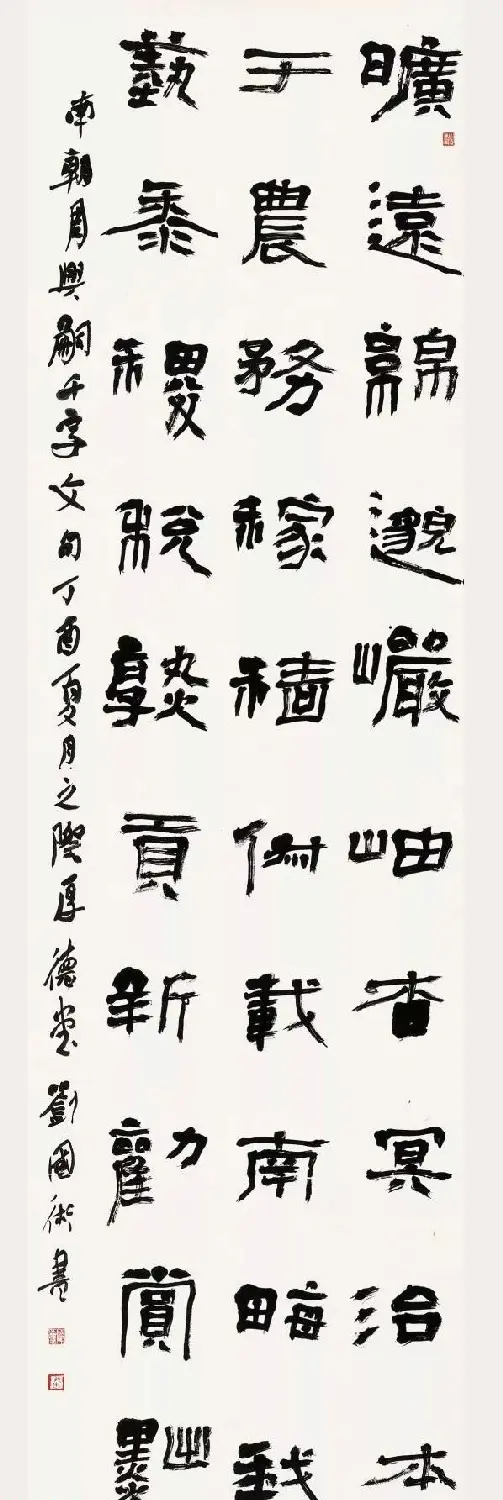 曠遠綿邈巖岫杳冥治本
于農務稼穡俶載南畮我
藝黍稷稅熟貢新勸賞黜
南朝周興嗣千字文句丁酉夏月之際厚德堂劉國術書